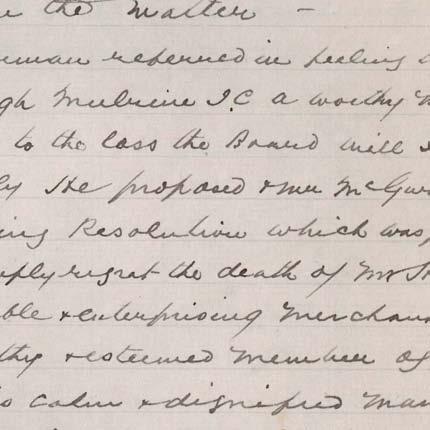 the Matter –
referred in feeling
Mulvine J.C a worthy
to the loss the Board will
He proposed & Mr McGur
ing Resolution which was,
eply regret the death of Mr
ble & enterprising Merchan
thy & esteemed Member of
s calm & dignified Man